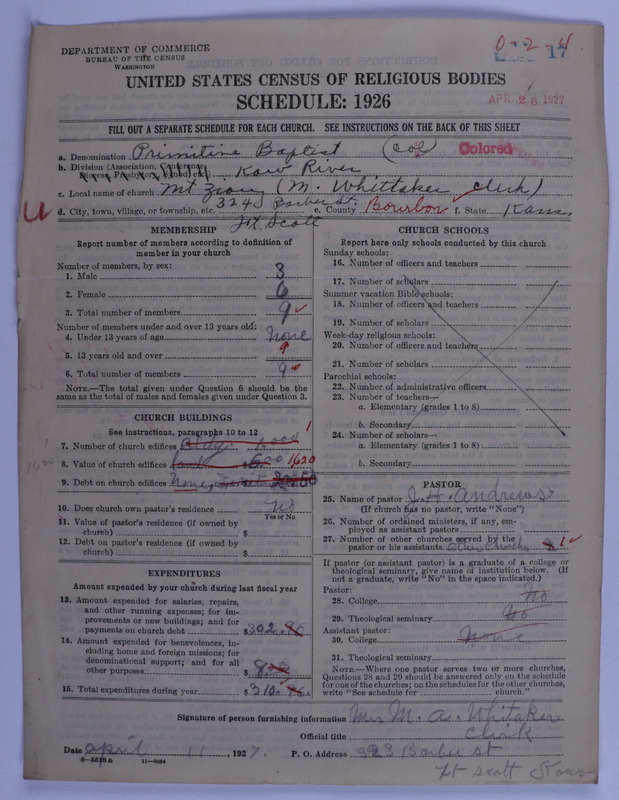 DEPARTMENT OF COMMERCE
BUREAU OF THE CENSUS
WASHINGTON
17
APR 28 1927
UNITED STATES CENSUS OF RELIGIOUS BODIES
SCHEDULE: 1926
FILL OUT A SEPARATE SCHEDULE FOR EACH CHURCH. SEE INSTRUCTIONS ON THE BACK OF THIS SHEET
a. Denomination Primitive Baptist (Col) Colored
b. Division (Association, Conference, Diocese, Presbytery, Synod, etc.) Kaw River
c. Local name of church Mt Zion (M. Whittaker clerk)
d. City, town, village, or township, etc. 324 S Barber St. Ft. Scott e. County Bourbon f. State Kans.
MEMBERSHIP
Report number of members according to definition of
member in your church
Number of members, by sex:
1. Male 3
2. Female 6
3. Total number of members 9
Number of members under and over 13 years old:
4. Under 13 years of age none
5. 13 years old and over 9
6. Total number of members 9
NOTE.—The total given under Question 6 should be the
same as the total of males and females given under Question 3.
CHURCH BUILDINGS
See instructions, paragraphs 10 to 12
7. Number of church edifices 1,000 1
8. Value of church edifices 600 1620
1620
9. Debt on church edifices None
10. Does church own pastor's residence No
Yes or No
11. Value of pastor's residence (if owned by
church) $
12. Debt on pastor's residence (if owned by
church) $
EXPENDITURES
Amount expended by your church during last fiscal year
13. Amount expended for salaries, repairs,
and other running expenses; for im-
provements or new buildings; and for
payments on church debt $302.
14. Amount expended for benevolences, in-
cluding home and foreign missions; for
denominational support; and for all
other purposes $8.
15. Total expenditures during year $310.
CHURCH SCHOOLS
Report here only schools conducted by this church
Sunday schools:
16. Number of officers and teachers
17. Number of scholars
Summer vacation Bible schools:
18. Number of officers and teachers
19. Number of scholars
Week-day religious schools:
20. Number of officers and teachers
21. Number of scholars
Parochial schools:
22. Number of administrative officers
23. Number of teachers—
a. Elementary (grades 1 to 8)
b. Secondary
24. Number of scholars—
a. Elementary (grades 1 to 8)
b. Secondary
PASTOR
25. Name of pastor J. H. Andrews
(If church has no pastor, write "None")
26. Number of ordained ministers, if any, em-
ployed as assistant pastors
27. Number of other churches served by the
pastor or his assistants other churches 1
If pastor (or assistant pastor) is a graduate of a college or
theological seminary, give name of institution below. (If
not a graduate, write "No" in the space indicated.)
Pastor:
28. College No
29. Theological seminary No
Assistant pastor:
30. College None
31. Theological seminary
NOTE.—Where one pastor serves two or more churches,
Questions 28 and 29 should be answered only on the schedule
for one of the churches; on the schedules for the other churches,
write "See schedule for church."
Signature of person furnishing information Mrs M. A. Whitaker
Official title Clerk
Date April 11, 1927. P. O. Address 323 Barber st
8—5515a 11—9084
Ft scott